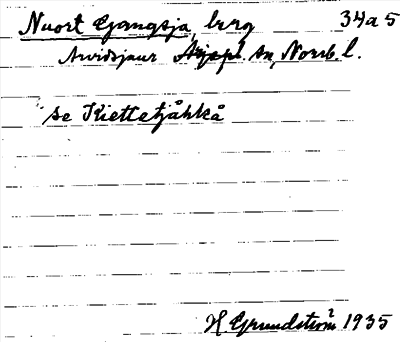 Nuort Gjangsja, berg 34a5
Arvidsjaur Arjepl. sn, Norrb. l.
se Kiettetjåhkå
H. Grundström 1935